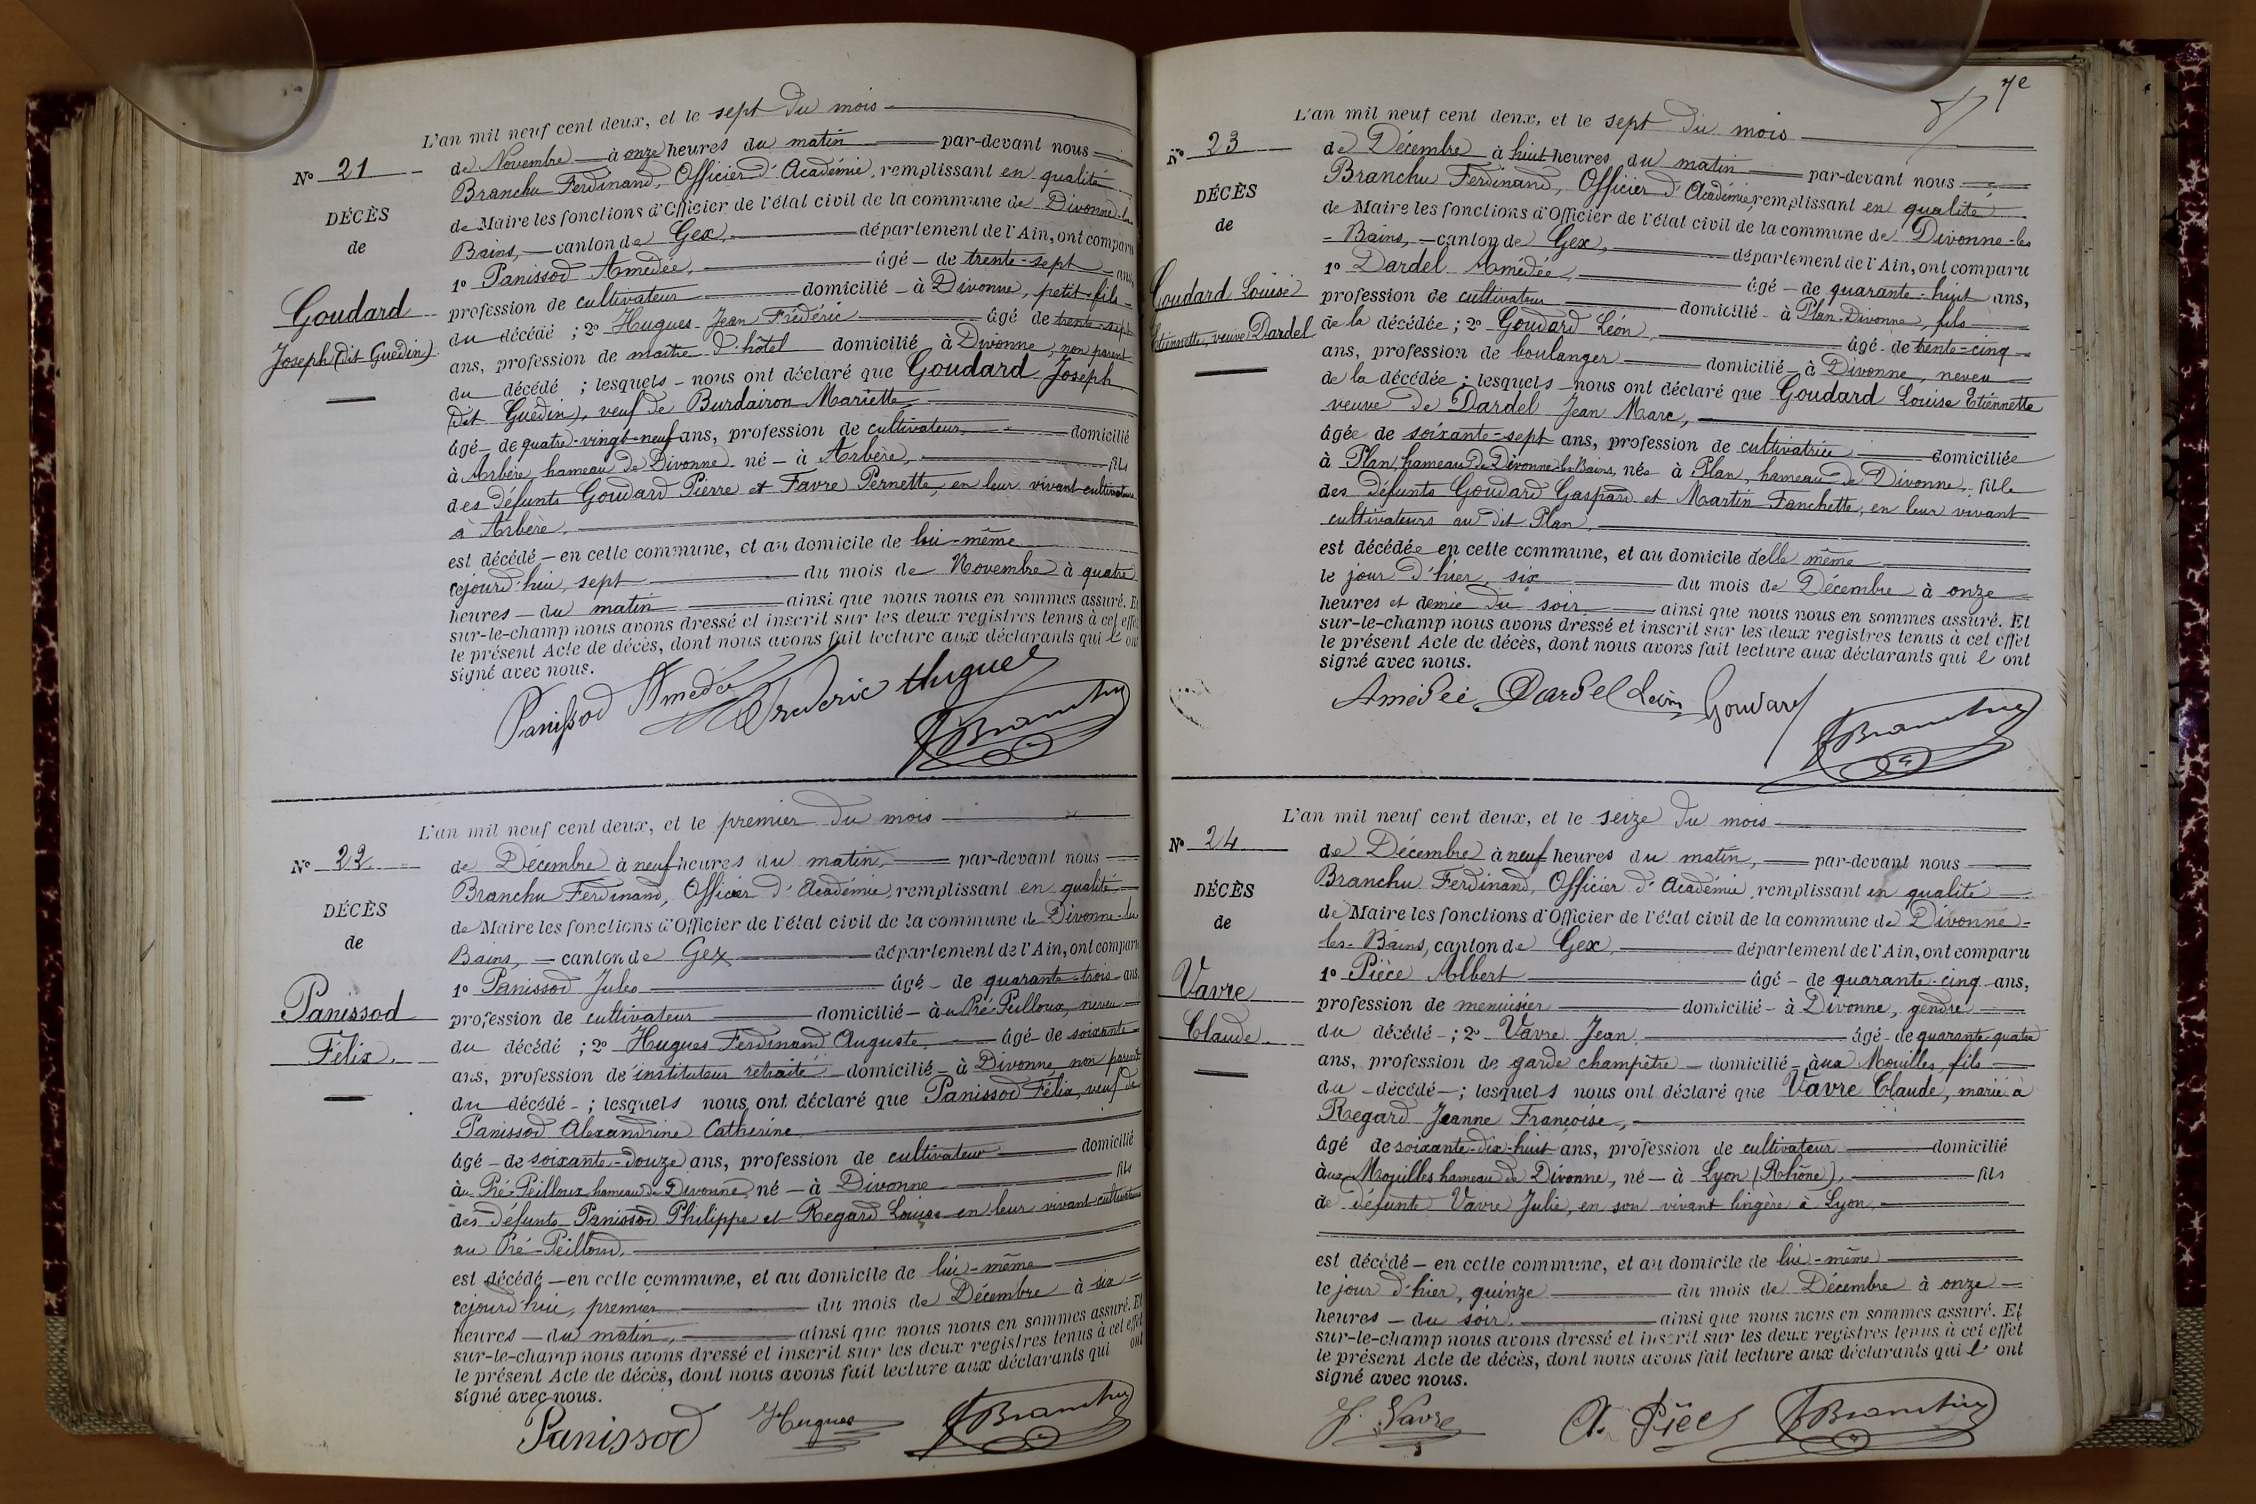 L'an mil neuf cent deux, et le sept du mois
Nº 21
de Novembre à onze heures du matin par-devant nous
Branchu Ferdinand, Officier d'Académie, remplissant en qualité
DÉCÈS
de Maire les fonctions d'Officier de l'état civil de la commune de Divonne-les
de
Bains, canton de Gex, département de l'Ain, ont comparu
1º Panissod Amédée, âgé de trente-sept ans,
Goudard
profession de cultivateur domicilié à Divonne, petit-fils
du décédé ; 2º Hugues Jean Frédéric âgé de trente-sept
Joseph (dit Guédin)
ans, profession de maître d'hôtel domicilié à Divonne, non parent
du décédé ; lesquels nous ont déclaré que Goudard Joseph
(dit Guédin), veuf de Burdairon Mariette,
âgé de quatre-vingt-neuf ans, profession de cultivateur, domicilié
à Arbère, hameau de Divonne né à Arbère, fils
des défunts Goudard Pierre et Favre Pernette, en leur vivant cultivateurs
à Arbère,
est décédé en cette commune, et au domicile de lui-même
cejourd'hui, sept du mois de Novembre à quatre
heures du matin ainsi que nous nous en sommes assuré. Et
sur-le-champ nous avons dressé et inscrit sur les deux registres tenus à cet effet
le présent Acte de décès, dont nous avons fait lecture aux déclarants qui l' ont
signé avec nous.
Panissod Amédée Frederic Hugues
FBranchu
L'an mil neuf cent deux, et le premier du mois
Nº 22
de Décembre à neuf heures du matin, par-devant nous
Branchu Ferdinand, Officier d'Académie, remplissant en qualité
DÉCÈS
de Maire les fonctions d'Officier de l'état civil de la commune de Divonne-les
de
Bains, canton de Gex département de l'Ain, ont comparu
1º Panissod Jules âgé de quarante-trois ans,
Panissod
profession de cultivateur domicilié au Pré-Peilloux, neveu
Félix.
du décédé ; 2º Hugues Ferdinand Auguste, âgé de soixante
ans, profession de instituteur retraité domicilié à Divonne, non parent
du décédé ; lesquels nous ont déclaré que Panissod Félix, veuf de
Panissod Alexandrine Catherine
âgé de soixante-douze ans, profession de cultivateur domicilié
au Pré-Peilloux hameau de Divonne, né à Divonne fils
des défunts Panissod Philippe et Regard Louise en leur vivant cultivateurs
au Pré-Peilloux,
est décédé en cette commune, et au domicile de lui-même
cejourd'hui, premier du mois de Décembre à six
heures du matin, ainsi que nous nous en sommes assuré. Et
sur-le-champ nous avons dressé et inscrit sur les deux registres tenus à cet effet
le présent Acte de décès, dont nous avons fait lecture aux déclarants qui ont
signé avec nous.
Panissod Hugues FBranchu
L'an mil neuf cent deux, et le sept du mois
Nº 23
de Décembre à huit heures du matin par-devant nous
Branchu Ferdinand, Officier d'Académie, remplissant en qualité
DÉCÈS
de Maire les fonctions d'Officier de l'état civil de la commune de Divonne-les
de
-Bains, canton de Gex, département de l'Ain, ont comparu
1º Dardel Amédée, âgé de quarante-huit ans,
Goudard Louise
profession de cultivateur domicilié à Plan-Divonne, fils
Etiennette, veuve Dardel
de la décédée ; 2º Goudard Léon, âgé de trente-cinq
ans, profession de boulanger domicilié à Divonne, neveu
de la décédée ; lesquels nous ont déclaré que Goudard Louise Etiennette
veuve de Dardel Jean Marc,
âgée de soixante-sept ans, profession de cultivatrice domiciliée
à Plan, hameau de Divonne-les-Bains, née à Plan, hameau de Divonne, fille
des défunts Goudard Gaspard et Martin Fanchette, en leur vivant
cultivateurs au dit Plan,
est décédée en cette commune, et au domicile d'elle même
le jour d'hier, six du mois de Décembre à onze
heures et demie du soir ainsi que nous nous en sommes assuré. Et
sur-le-champ nous avons dressé et inscrit sur les deux registres tenus à cet effet
le présent Acte de décès, dont nous avons fait lecture aux déclarants qui l' ont
signé avec nous.
Amédée Dardel Léon Goudard
FBranchu
L'an mil neuf cent deux, et le seize du mois
Nº 24
de Décembre à neuf heures du matin, par-devant nous
Branchu Ferdinand, Officier d'Académie, remplissant en qualité
DÉCÈS
de Maire les fonctions d'Officier de l'état civil de la commune de Divonne-
de
les-Bains, canton de Gex, département de l'Ain, ont comparu
1º Pièce Albert âgé de quarante-cinq ans,
Vavre
profession de menuisier domicilié à Divonne, gendre
Claude.
du décédé ; 2º Vavre Jean, âgé de quarante-quatre
ans, profession de garde champêtre domicilié aux Mouilles, fils
du décédé ; lesquels nous ont déclaré que Vavre Claude, marié à
Regard Jeanne Françoise,
âgé de soixante-dix-huit ans, profession de cultivateur domicilié
aux Mouilles hameau de Divonne, né à Lyon (Rhône), fils
de défunte Vavre Julie, en son vivant lingère à Lyon,
est décédé en cette commune, et au domicile de lui-même
le jour d'hier, quinze du mois de Décembre à onze
heures du soir, ainsi que nous nous en sommes assuré. Et
sur-le-champ nous avons dressé et inscrit sur les deux registres tenus à cet effet
le présent Acte de décès, dont nous avons fait lecture aux déclarants qui l' ont
signé avec nous.
J. Vavre A. Pièce FBranchu